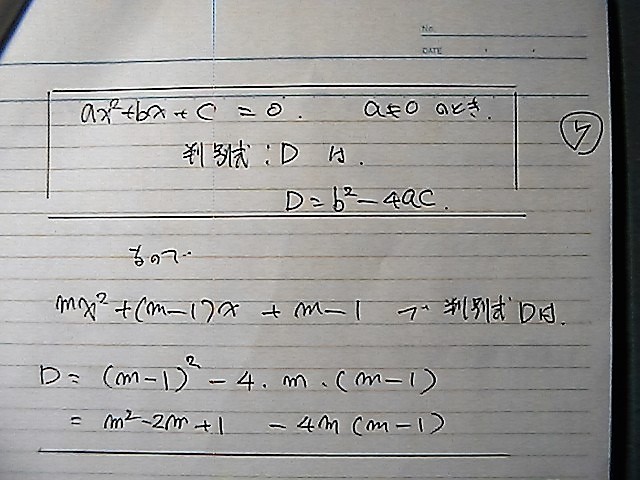 No.
DATE
ax²+bx+c = 0. a≠0 のとき.
判別式:D は.
D=b²-4ac.
mx²+(m-1)x + m-1 判別式Dは.
D= (m-1)² - 4.m.(m-1)
= m²-2m+1 - 4m(m-1)